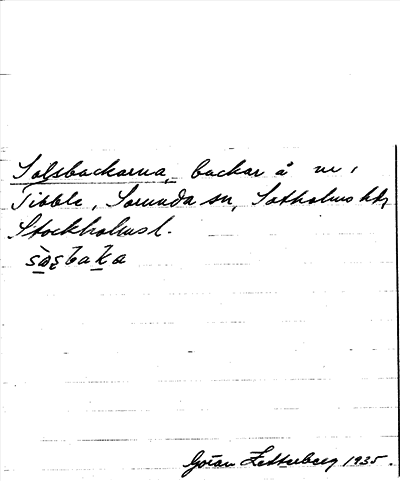 Solsbackarna, backar å nr 1
Tibble, Sorunda sn, Sotholms hd,
Stockholms l.
Göran Zetterberg 1935.